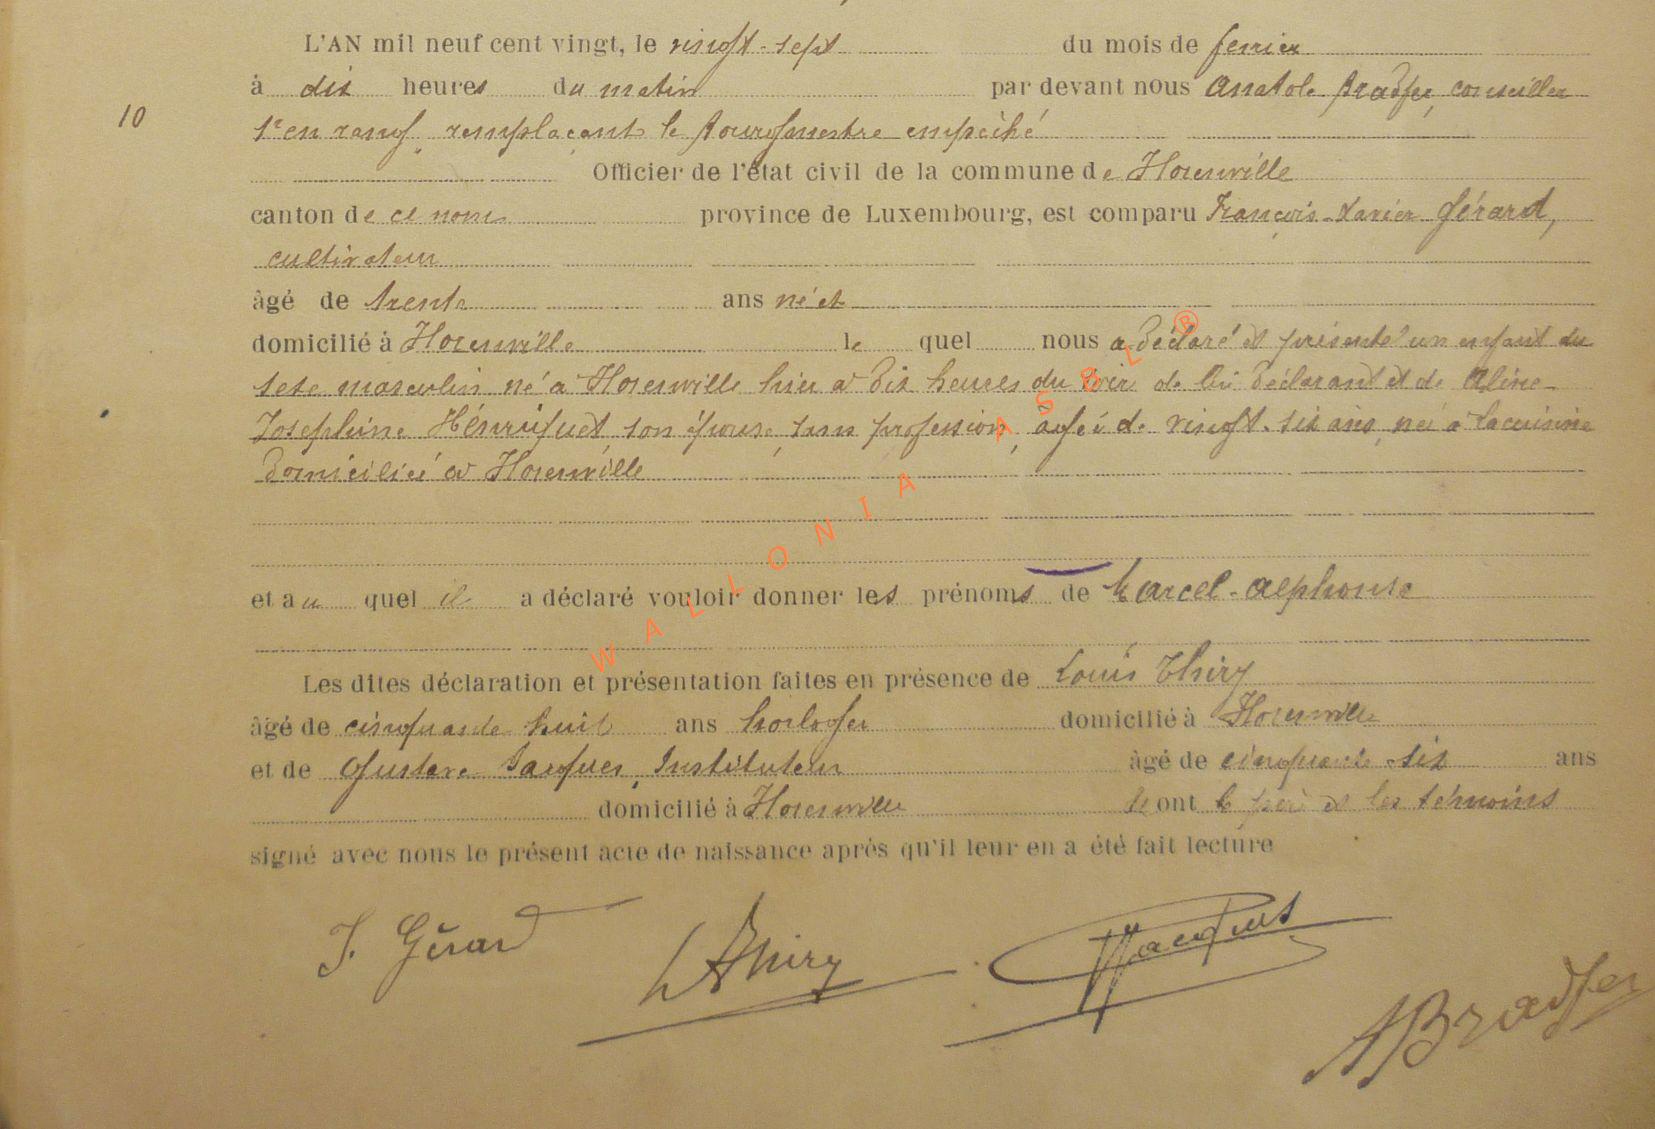 L'AN mil neuf cent vingt, le vingt-sept du mois de fevrier
à dix heures du matin par devant nous Anatole Bradfer, conseiller
10
1er en rang, remplaçant le Bourgmestre empêché
Officier de l'état civil de la commune de Hosenville
canton de ce nom province de Luxembourg, est comparu François-Xavier Gérard,
cultivateur
âgé de trente ans né et
domicilié à Hosenville le quel nous a déclaré et présenté un enfant du
sexe masculin né à Hosenville hier à dix heures du soir de lui déclarant et de Aline-
Joséphine Henriquet son épouse, sans profession, âgée de vingt-six ans, née à Lacuisine
domiciliée à Hosenville
et au quel il a déclaré vouloir donner les prénoms de Marcel-Alphonse
Les dites déclaration et présentation faites en présence de Louis Thiry
âgé de cinquante huit ans horloger domicilié à
et de Gustave Jacques, Instituteur âgé de cinquante-six ans
domicilié à ont le père et les témoins
signé avec nous le présent acte de naissance après qu'il leur en a été fait lecture
J. Gérard
L Thiry
GJacques
ABradfer
WALLONIA ASBL ®